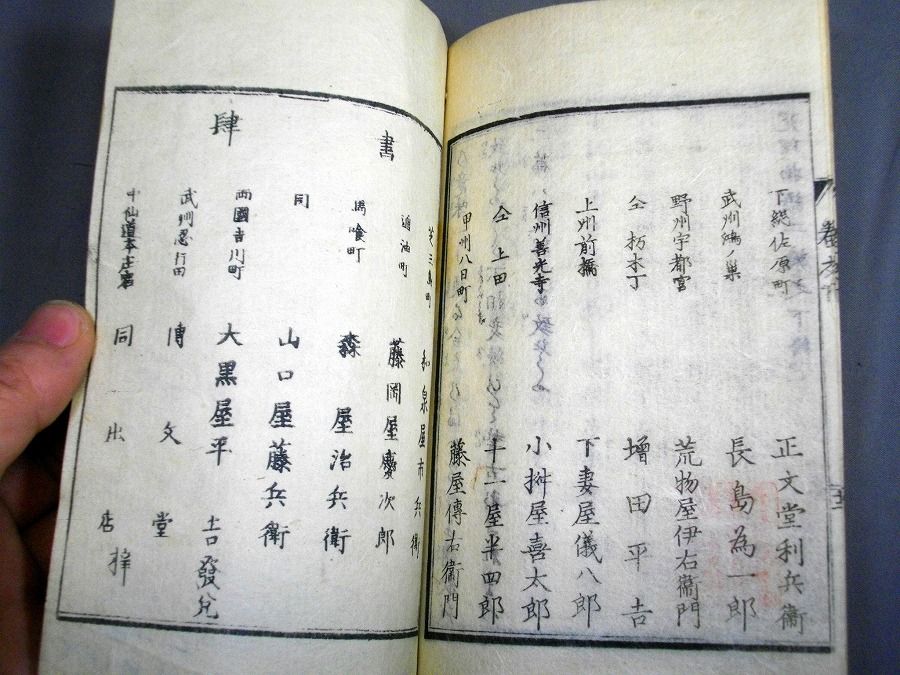 下総佐原町 正文堂利兵衛
武州鴻ノ巣 長島為一郎
野州宇都宮 荒物屋伊右衛門
仝 栃木丁 増田平吉
上州前橋 下妻屋儀八郎
信州善光寺 小桝屋喜太郎
仝 上田 屋半四郎
甲州八日町 藤屋傳右衛門
書肆
芝三島町 和泉屋市兵衛
通油町 藤岡屋慶次郎
馬喰町 森屋治兵衛
同 山口屋藤兵衛
両國吉川町 大黒屋平吉發兌
武州忍行田 博文堂
中仙道本庄宿 同出店梓